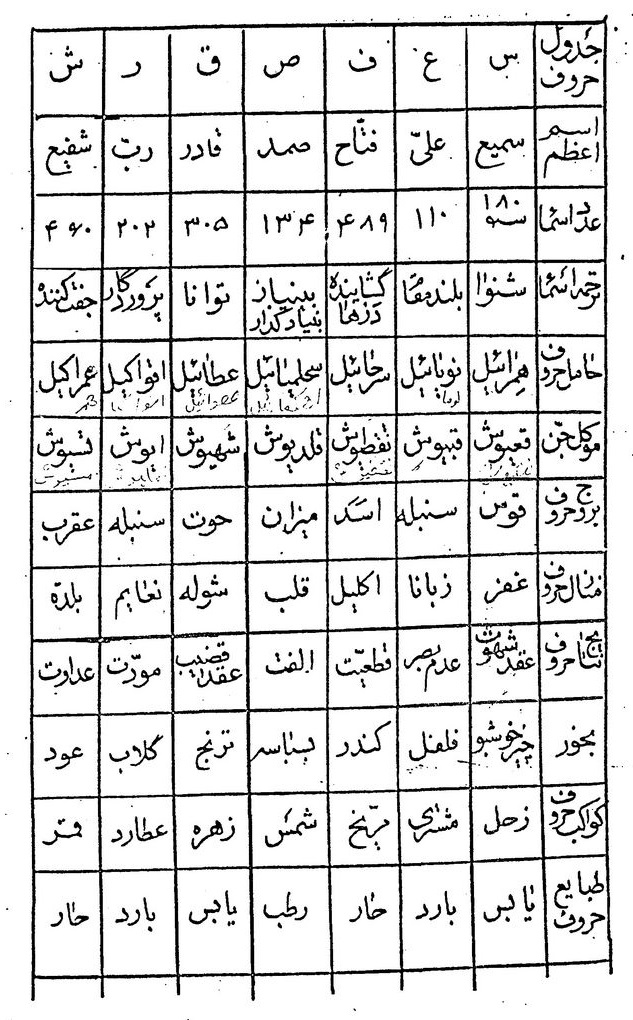 جدول حروف س ع ف ص ق ر ش
اسم اعظم سمیع علیّ فتّاح صمد قادر ربّ شفیع
عدد اسما ۱۸۰ ۱۱۰ ۴۸۹ ۱۳۴ ۳۰۵ ۲۰۲ ۴۶۰
ترجمه اسما شنوا بلندمقام گشاینده درها بینیاز بنیادگذار توانا پروردگار جفت کننده
حامل حروف همرائیل نویائیل سرحائیل سحلمیائیل عطائیل افواکیل عمراکیل
موکل جن قعپوش قیپوش تقطوش قلدیوش شهپوش اپوش تسپوش
بروج حروف قوس سنبله اسد میزان حوت سنبله عقرب
منازل حروف غفر زبانا اکلیل قلب شوله نعایم بلده
نتایج حروف عقد شهوت عدم بصر قطعیّت الفت عقد قضیب مودّت عداوت
بخور چیز خوشبو فلفل کندر بسباسه ترنج گلاب عود
کواکب حروف زحل مشتری مریخ شمس زهره عطارد قمر
طبایع حروف یابس بارد حار رطب یابس بارد حار